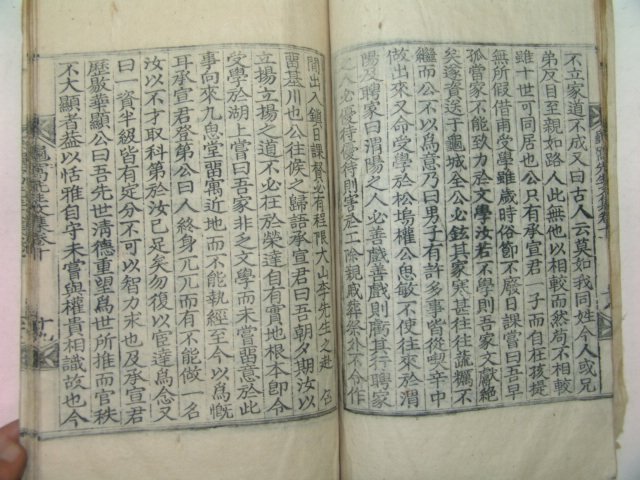 不立家道不成又曰古人云莫如我同姓今人或兄
弟反目至親如路人此無他以相較而然局不相較
雖十世可同居也公只有承宣君一子而自在孩提
無所假借甫受學雖歲時俗節不廢日課嘗曰吾早
孤當家不能致力於文學汝若不學則吾家文獻絶
矣遂資送于龜城全公必鉉其家寒甚往往蔬糲不
繼而公不以爲意乃曰男子有許多事皆從喫辛中
做出來又命受學於松塢權公思敏不使往來於渭
陽及聘家曰渭陽之人必善戱善戱則廳其行聘家
之人必優待優待則害於工除親戚葬祭外不令作
閒出入鎖日課督必有程限大山李先生之赴 召
留基川也公往候之歸語承宣君曰吾朝夕期汝以
立揚立揚之道不必在於榮達自有實地根本即令
受學於湖上嘗曰吾家非之文學而未嘗留意於此
事向來九魚堂留寓近地而不能執經至今以爲慨
耳承宣君登第公曰人終身兀兀而有不能做一名
汝以不才取科第於汝已足矣勿復以宦達爲念又
曰一資半級皆有定分不可以智力求也及承宣君
歷敭華顯公曰吾先世淸德重望爲世所推而官秩
不大顯者蓋以恬雅自守未嘗與權貴相識故也今